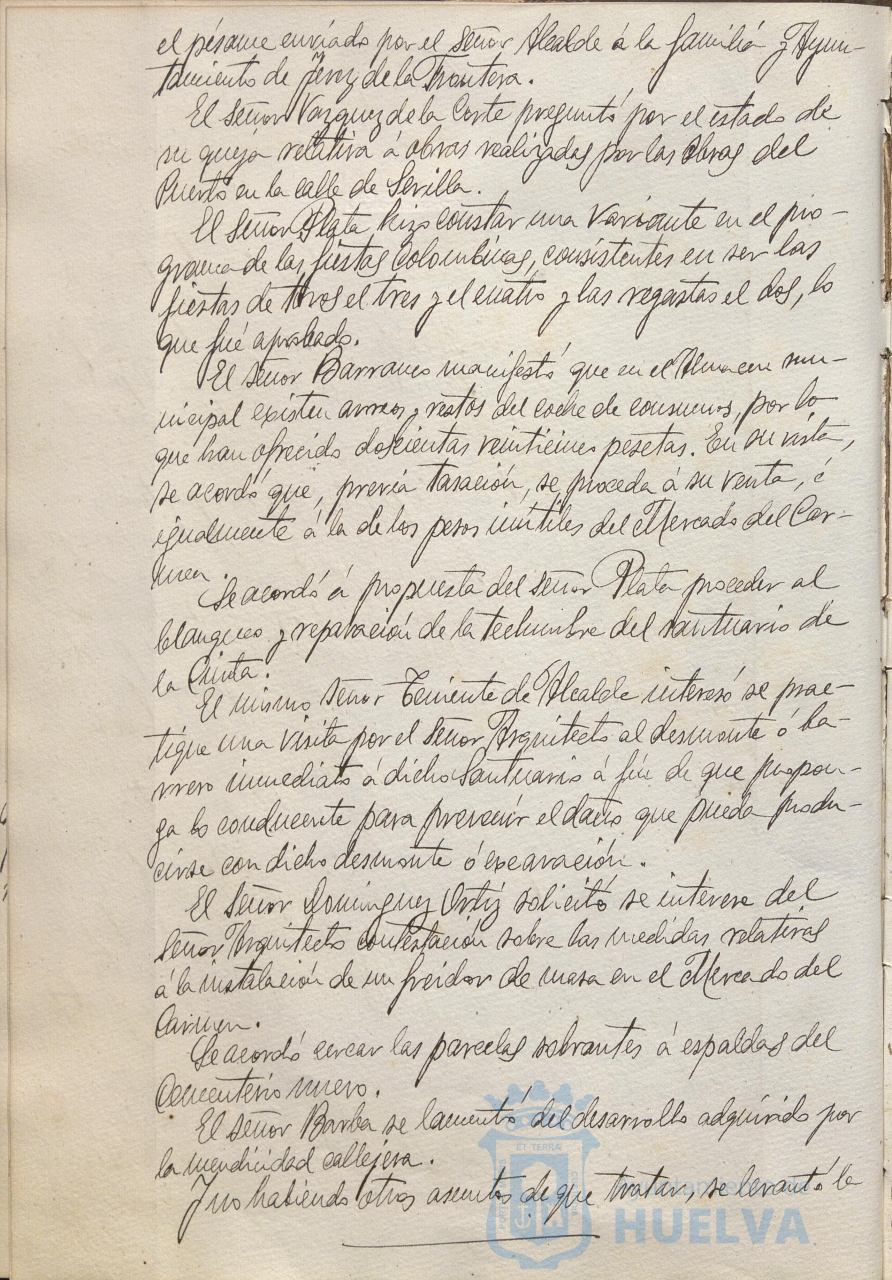 el pésame enviado por el Señor Alcalde á la familia y Ayun-
tamiento de Jerez de la Frontera.
El Señor Vazquez de la Corte preguntó por el estado de
su queja relativa á obras realizadas por las Obras del
Puerto en la calle de Sevilla.
El Señor Plata hizo constar una variante en el pro-
grama de las fiestas Colombinas, consistentes en ser las
fiestas de toros el tres y el cuatro y las regastas el dos, lo
que fué aprobado.
El Señor Barranco manifestó que en el Almacen mu-
nicipal existen arreos y restos del coche de consumos, por lo
que han ofrecido doscientas veinticinco pesetas. En su vista,
se acordó que, previa tasación, se proceda á su venta, é
igualmente á la de los pesos inútiles del Mercado del Car-
men.
Se acordó á propuesta del Señor Plata proceder al
blanqueo y reparación de la techumbre del santuario de
la Cinta.
El mismo Señor Teniente de Alcalde interesó se prac-
tique una visita por el Señor Arquitecto al desmonte ó ba-
rrero inmediato á dicho Santuario á fin de que propon-
ga lo conducente para prevenir el daño que pueda produ-
cirse con dicho desmonte ó excavación.
El Señor Dominguez Ortiz solicitó se interese del
Señor Arquitecto contestación sobre las medidas relativas
á la instalación de un freidor de masa en el Mercado del
Carmen.
Se acordó cercar las parcelas sobrantes á espaldas del
Cementerio nuevo.
El Señor Barba se lamentó del desarrollo adquirido por
la mendicidad callejera.
Y no habiendo otros asuntos de que tratar, se levantó la
ET TERRA
HUELVA